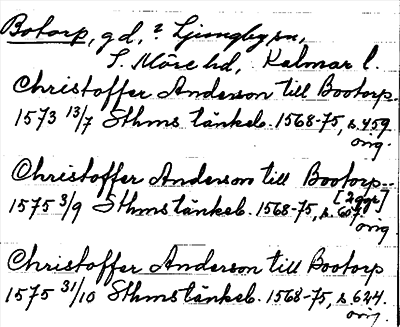 Botorp, gd, ? Ljungby sn,
S. Möre hd, Kalmar l.
Christoffer Anderson till Bootorp.
1573 13/7 Sthms tänkeb. 1568-75, s. 459
orig.
Christoffer Anderson till Bootorp.
[2 ggr]
1575 3/9 Sthms tänkeb. 1568-75, s. 607.
orig.
Christoffer Anderson till Bootorp
1575 31/10 Sthms tänkeb. 1568-75, s. 624.
orig.